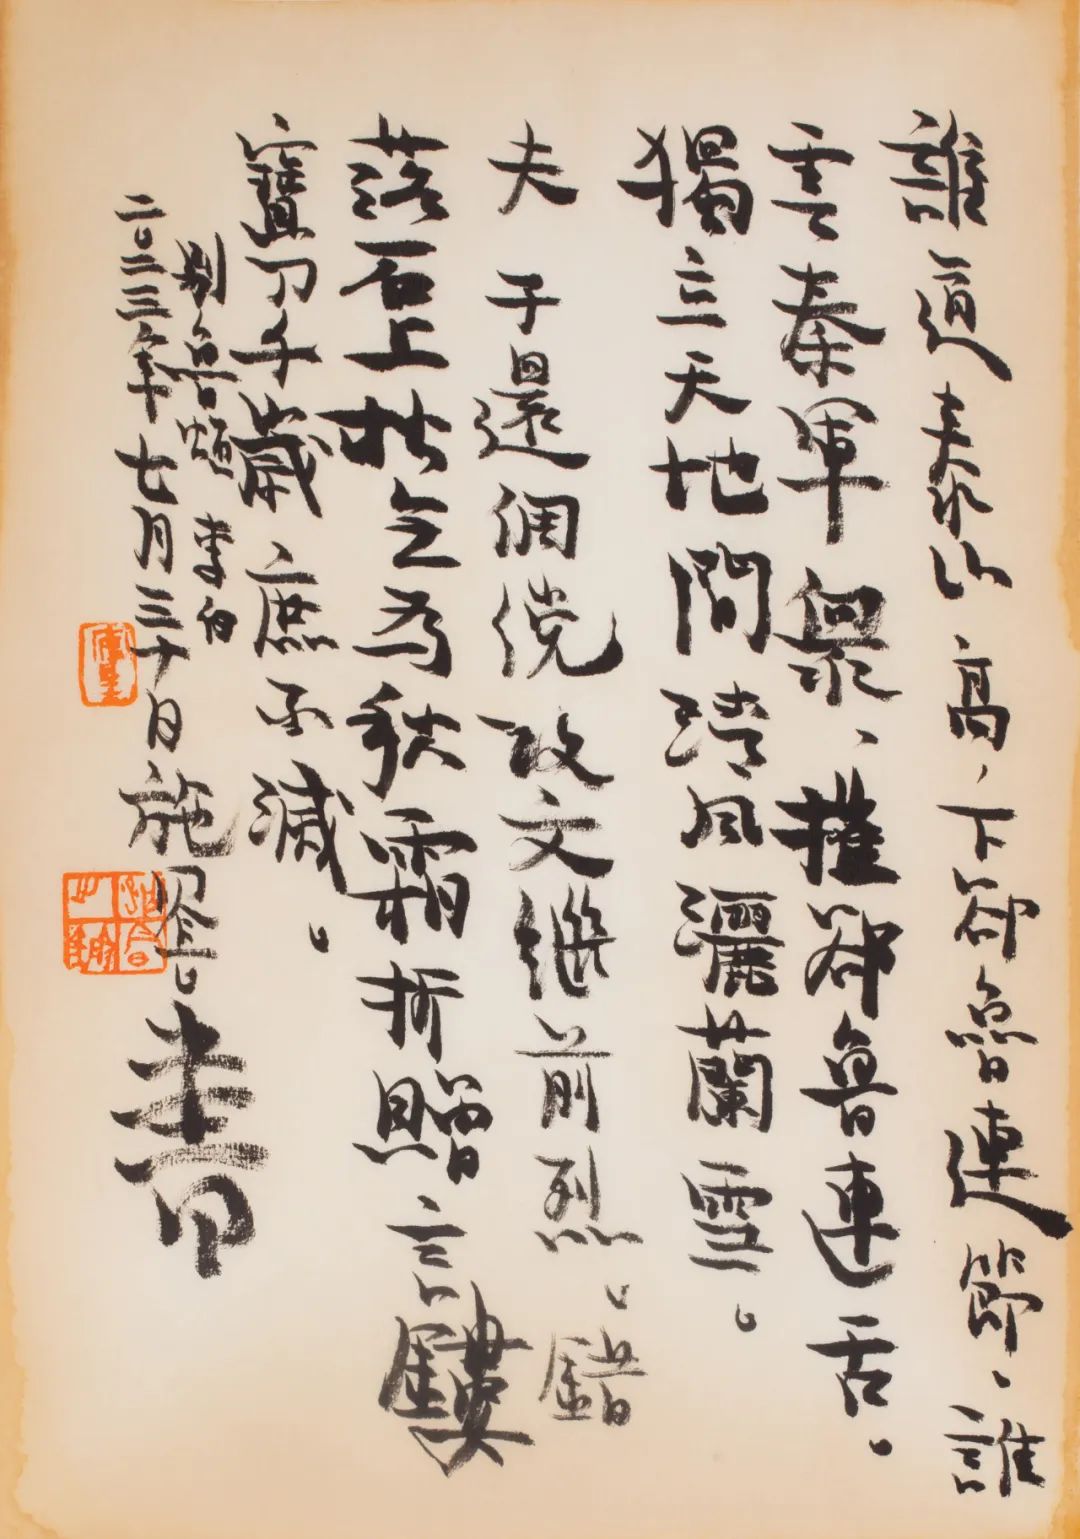 誰道泰山高、下卻魯連節、誰
雲秦軍眾、摧卻魯連舌。
獨立天地間清風灑蘭雪。
夫子還倜傥攻文繼前烈。錯
落石上松无為秋霜折贈言鏤
寶刀千歲、庶不滅。
別魯頌 李白
二〇二三年七月三十日施 書